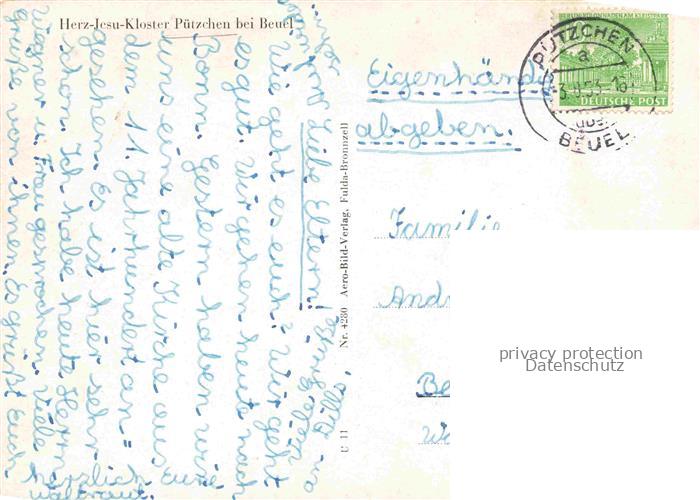 Herz-Jesu-Kloster Pützchen bei Beuel
Liebe Eltern!
Wie geht es euch? Wir geht
es gut. Wir gehen heute nach
Bonn. Gestern haben wir
uns eine alte Kirche aus
dem 11. Jahrhundert an=
gesehen. Es ist hier sehr
schön. Ich habe heute Herrn
Wagner u. Frau gesprochen. Viele
Grüße von ihnen. Es grüßt Euch
herzlich Eure
Waltraut
U 11 Nr. 4280 Aero-Bild-Verlag, Fulda-Bronnzell
Eigenhändi
abgeben.
Familie
And
Be
PÜTZCHEN
a
BEUEL
DEUTSCHE POST
privacy protection
Datenschutz